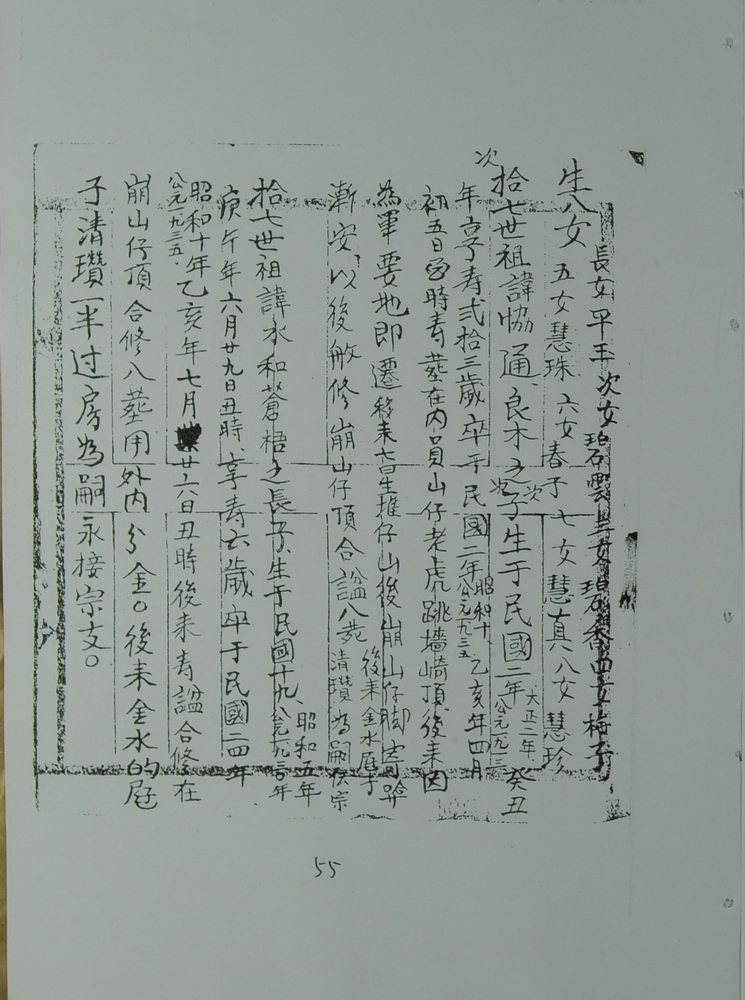 生八女 長女平玉 次女碧雲 三女碧香 四女梅子
五女慧珠 六女春子 七女慧真 八女慧珍
次
拾七世祖諱協通、良木之次子生于民國二年 大正二年 公元一九一三 癸丑
年享寿弍拾三歲卒于民國二年 昭和十 公元一九三五 乙亥年四月
初五日酉時寿塟在内員山仔老虎跳墻崎頂後来因
為軍要地即遷移来生推仔山後崩山仔脚寄葬
漸安以後敏修崩山仔頂合謚八塟 後来金水庶子清瓚為嗣伝宗
拾七世祖諱水和蒼梧之長子生于民國十九、昭和五年 公元一九三〇年
庚午年六月廿九日丑時、享寿六歲卒于民國二四年
昭和十年 公元一九三五、乙亥年七月廿六日丑時後来寿謚合修在
崩山仔頂合修八塟用外内分金。後来金水的庶
子清瓚一半过房為嗣永接宗支。
55